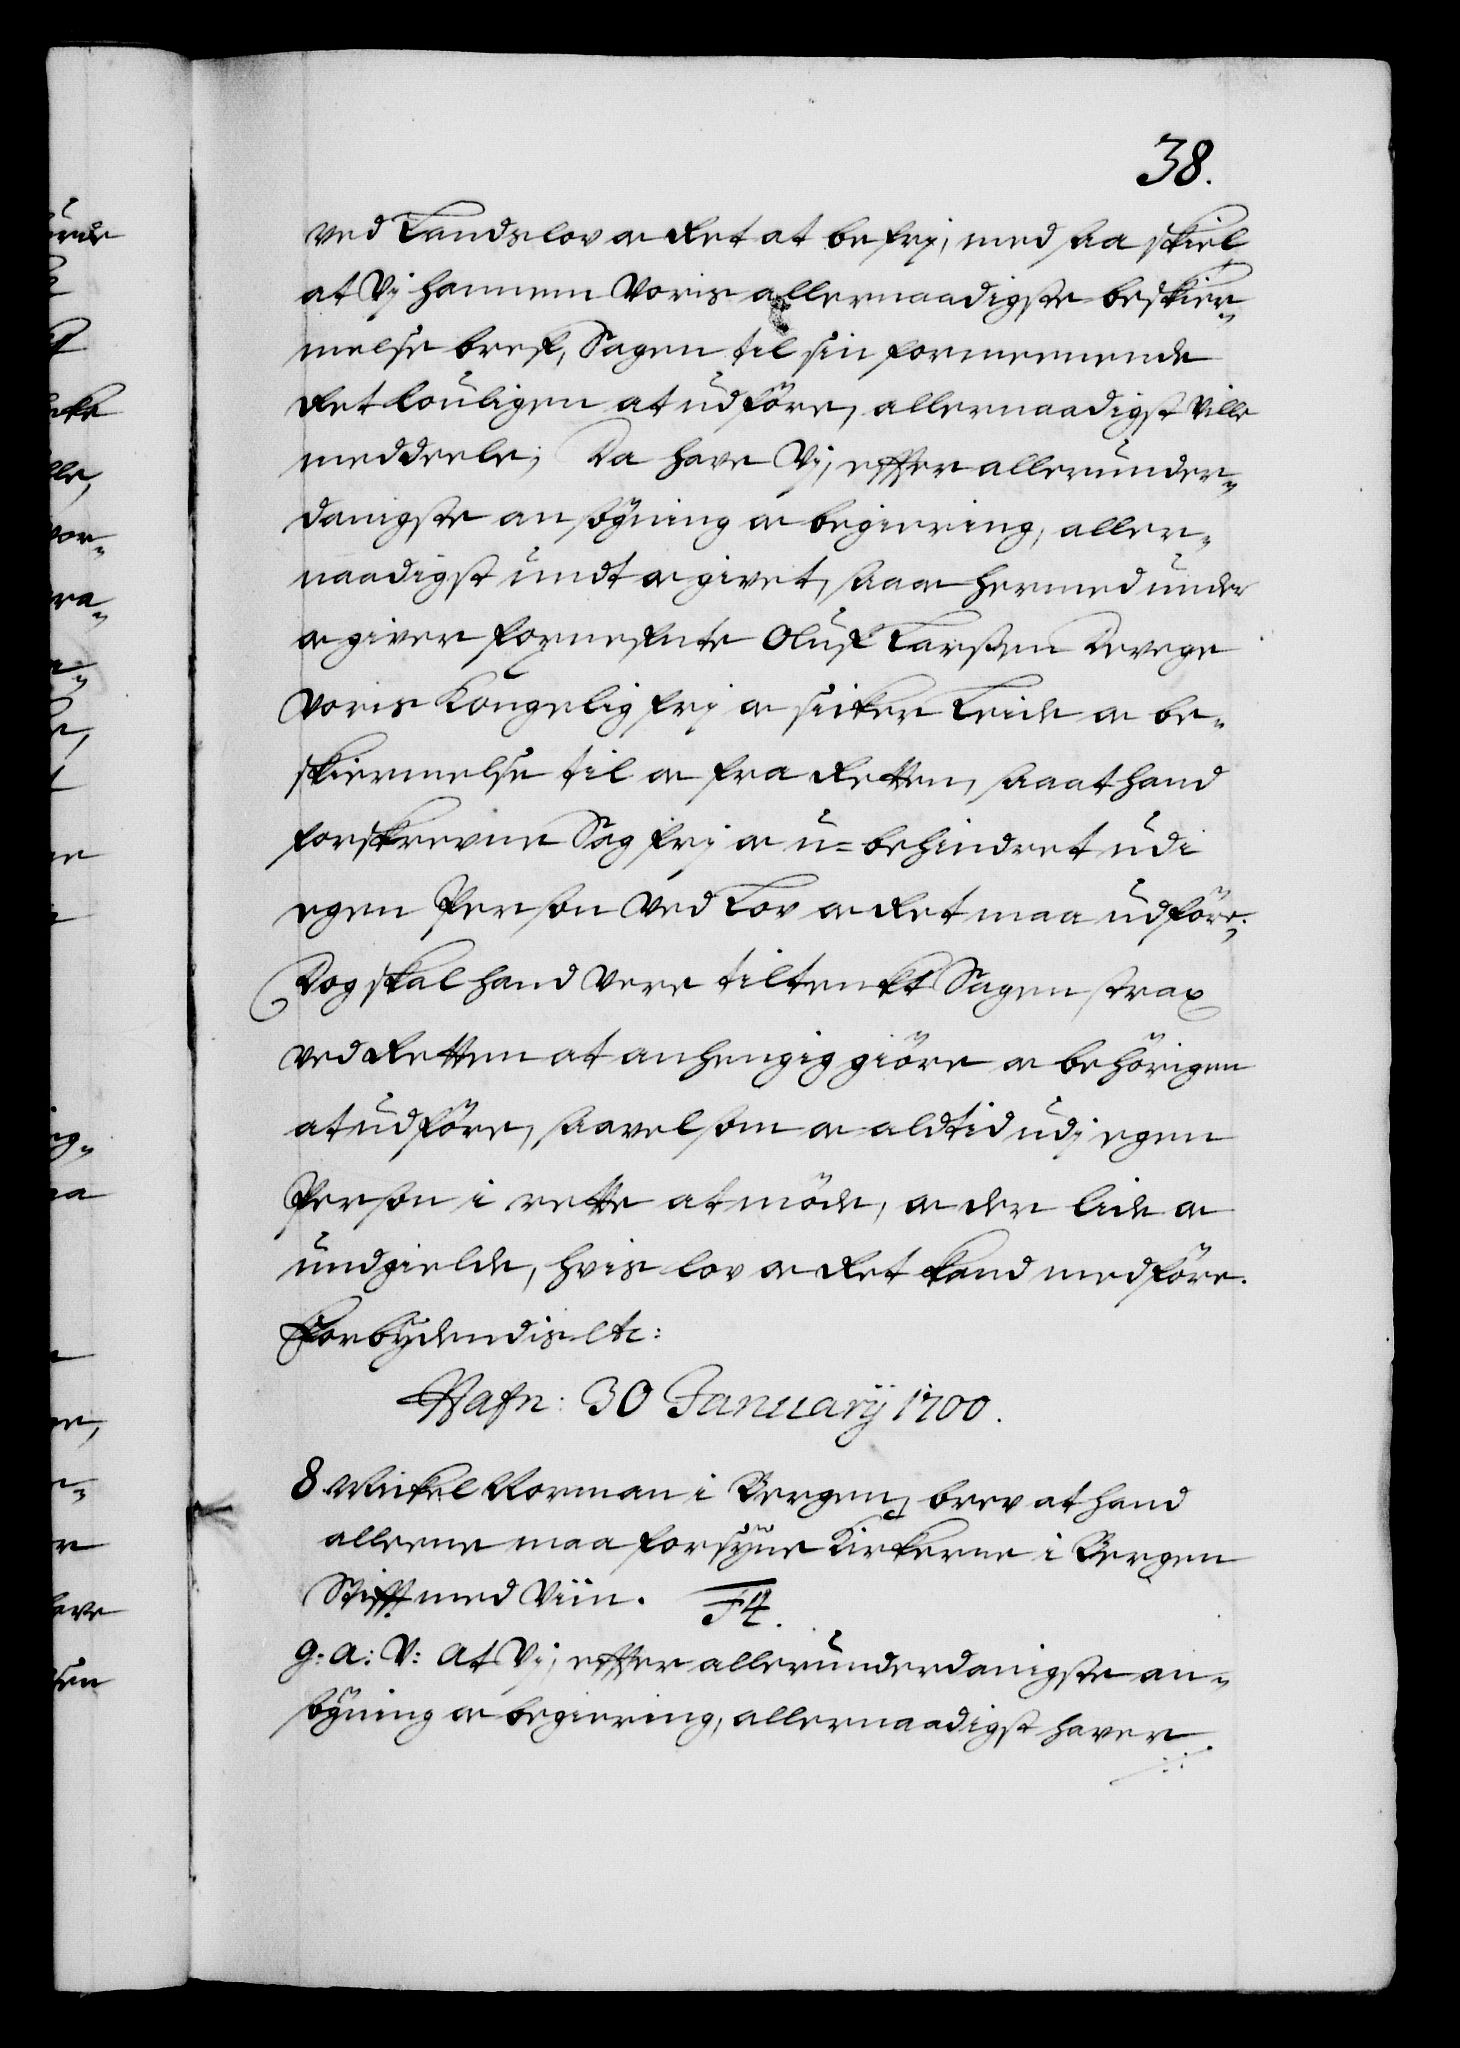 38.
ved Landslov oc Ret at befrj, med saa skiel
at Vj hannem Voris allernaadigste beskier-
melse bref, Sagen til sin formeenende
Ret louligen at udföre, allernaadigst Ville
meddeele; Da have Vj, efter allerunder-
danigste ansögning oc begiering, aller-
naadigst undt oc givet, saa oc hermed under
oc giver forneffnte Oluf Larsen Devege
Voris Kongelig frj oc sicker Leide oc be-
skiermelse til oc fra Retten, saa at hand
forskrevne Sag frj oc u-behindret udi
egen Person Ved Lov oc Ret maa udföre.
Dog skal hand Vere tiltenckt Sagen strax
ved Retten at anhengig giöre oc behörigen
at udföre, saavelsom oc altid udj egen
Person i rette at möde, oc der lide oc
undgielde, hvis lov oc Ret kand medföre.
Forbydendis etc:
Hafn: 30 Januarij 1700.
8 Mickel Korman i Bergen, brev at hand
alleene maa forsyne Kirkerne i Bergen
Stifft med Viin. F4.
G: A: V: At Vj, efter allerunderdanigste an-
sögning oc begiering, allernaadigst haver